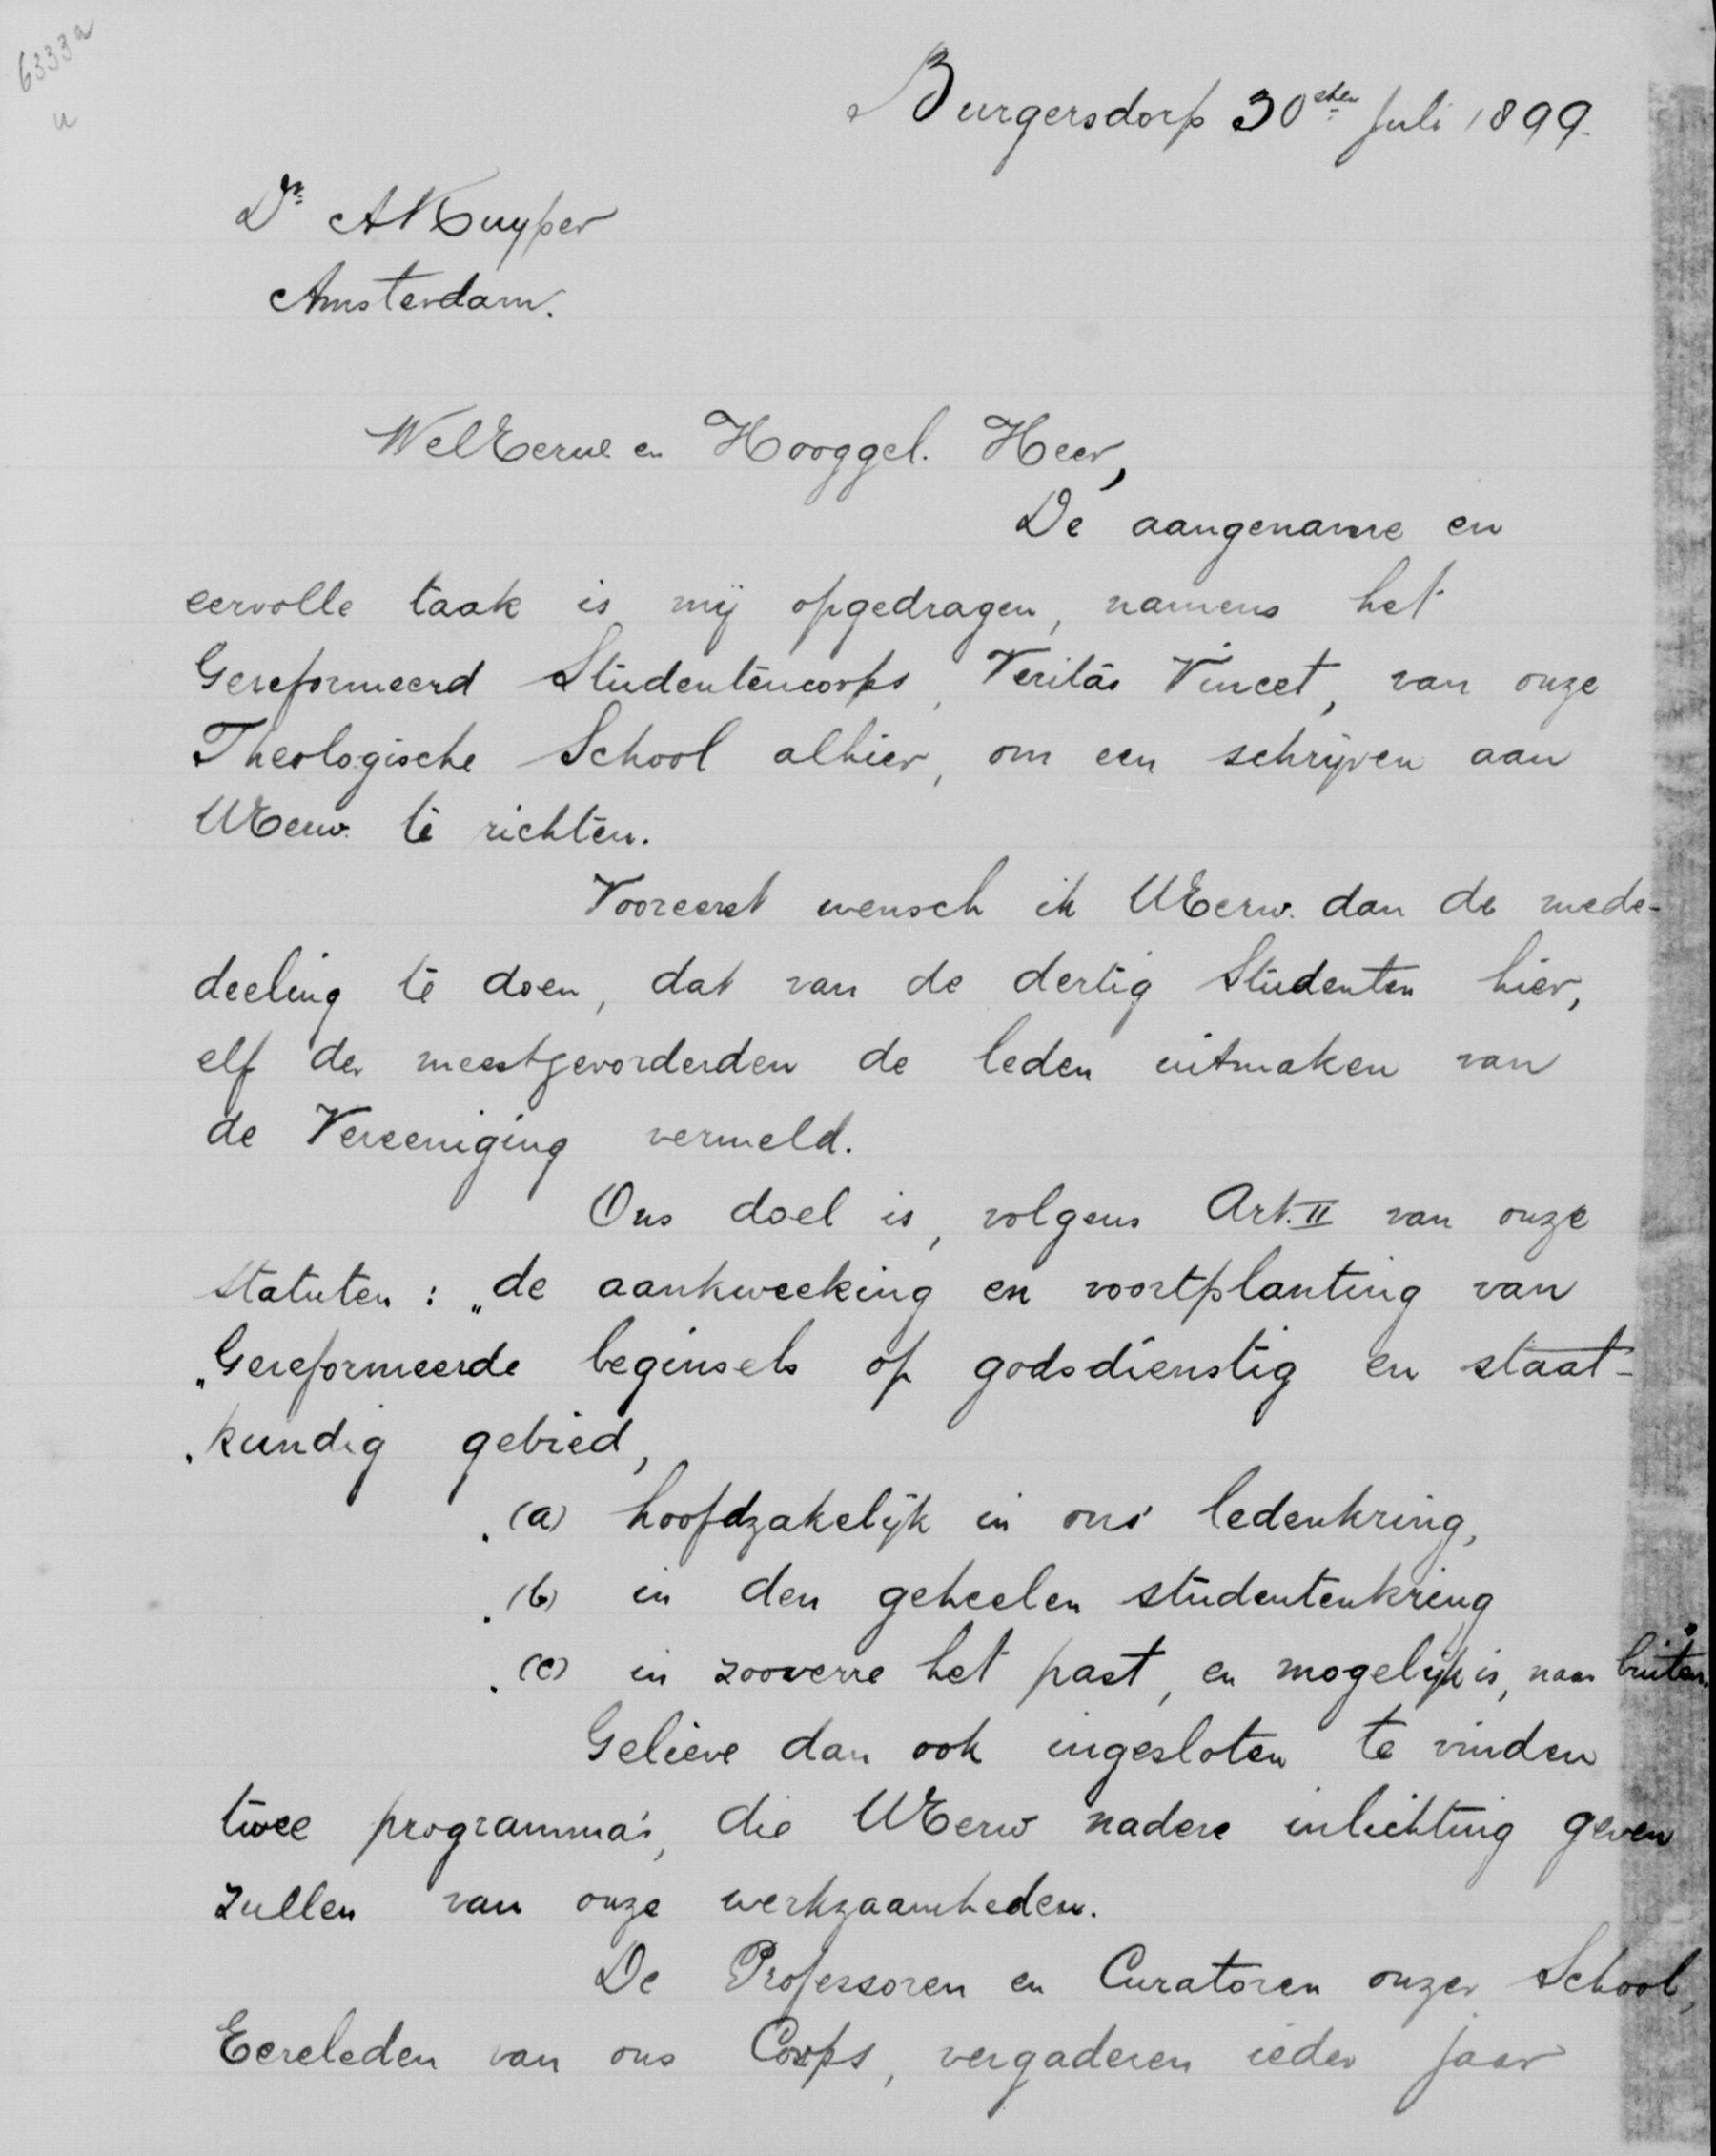 6333a
u
Burgersdorp 30sten Juli 1899.
Dr. A Kuyper
Amsterdam.
WelEerw. en Hooggel. Heer,
De aangename en
eervolle taak is mij opgedragen, namens het
Gereformeerd Studentencorps, Veritas Vincet, van onze
Theologische School alhier, om een schrijven aan
UEerw. te richten.
Vooreerst wensch ik UEerw. dan de mede-
deeling te doen, dat van de dertig Studenten hier,
elf der meestgevorderden de leden uitmaken van
de Vereeniging vermeld.
Ons doel is, volgens Art. II van onze
Statuten : „de aankweeking en voortplanting van
„Gereformeerde beginsels op godsdienstig en staat-
„kundig gebied,
„(a) hoofdzakelijk in ons ledenkring,
„(b) in den geheelen studentenkring
„(c) in zooverre het past, en mogelijk is, naar buiten."
Gelieve dan ook ingesloten te vinden
twee programma's, die UEerw nadere inlichting geven
zullen van onze werkzaamheden.
De Professoren en Curatoren onzer School,
Eereleden van ons Corps, vergaderen ieder jaar